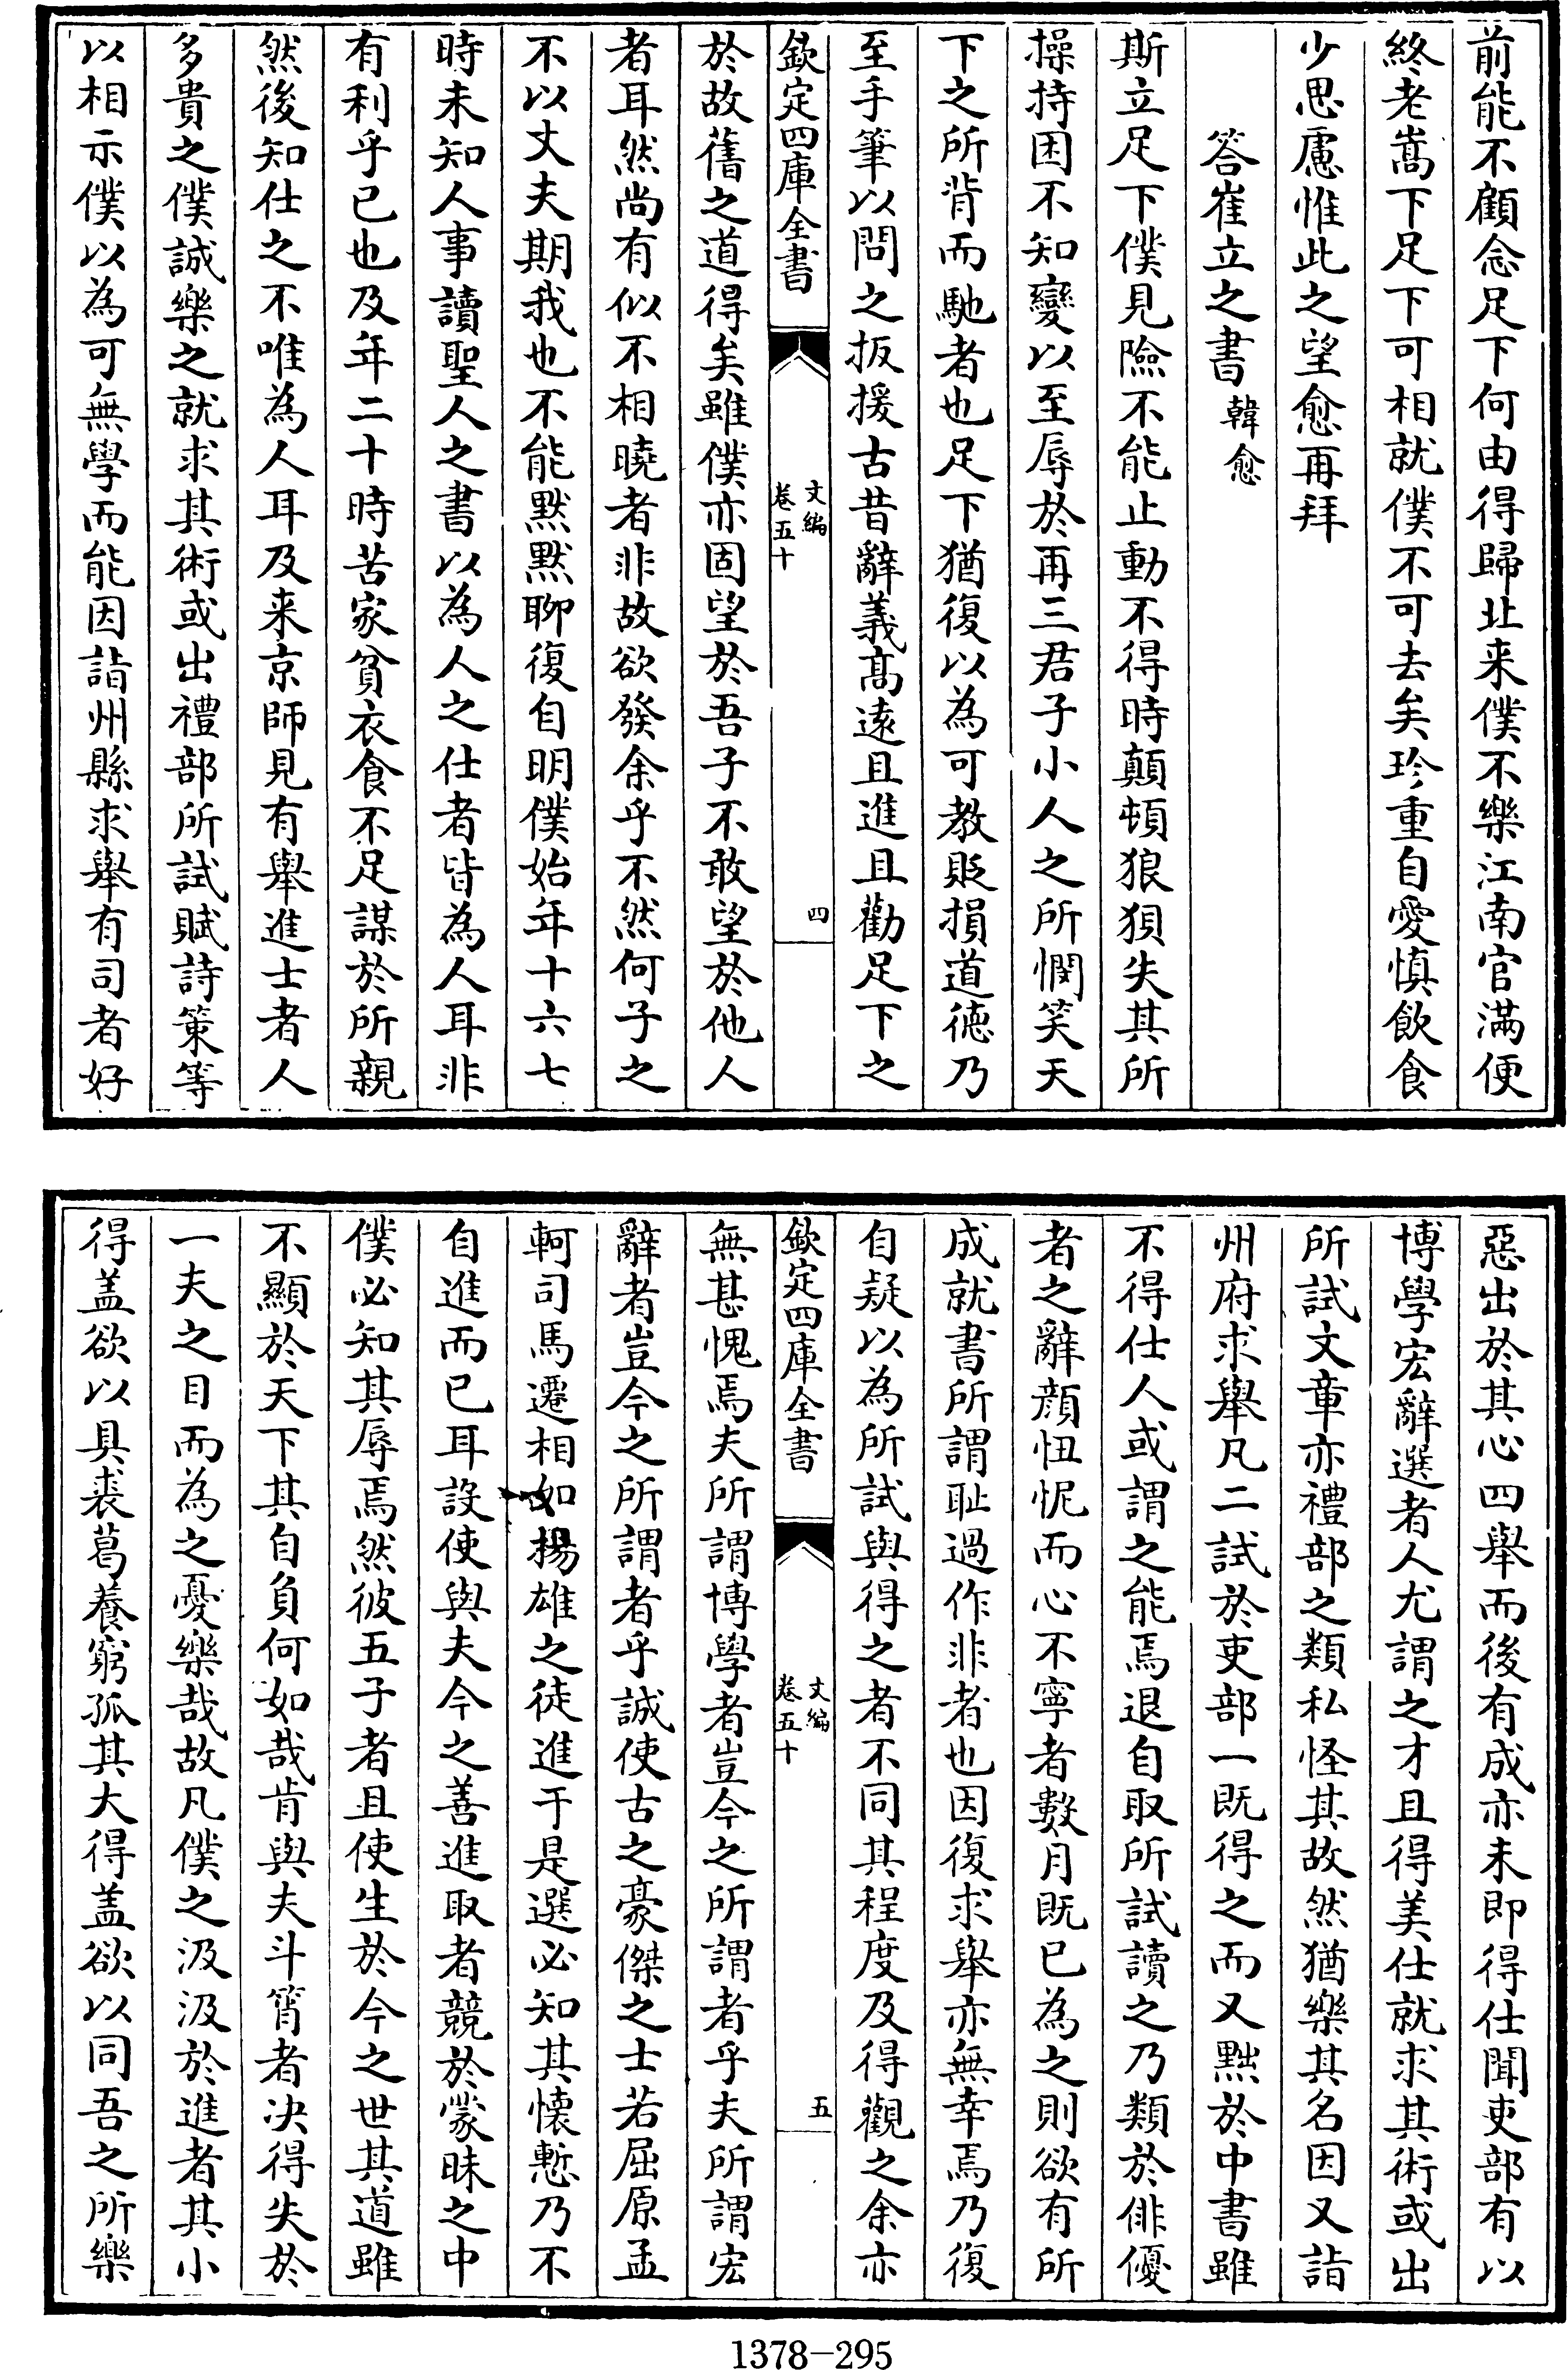 前能不顧念足下何由得歸北来僕不樂江南官滿便
終老嵩下足下可相就僕不可去矣珍重自愛慎飲食
少思慮惟此之望愈再拜
答崔立之書 韓愈
斯立足下僕見險不能止動不得時顛頓狼狽失其所
操持困不知變以至辱於再三君子小人之所憫笑天
下之所背而馳者也足下猶復以為可教貶損道德乃
至手筆以問之扳援古昔辭義高遠且進且勸足下之
欽定四庫全書
文編
卷五十
四
於故舊之道得矣雖僕亦固望於吾子不敢望於他人
者耳然尚有似不相曉者非故欲發余乎不然何子之
不以丈夫期我也不能默默聊復自明僕始年十六七
時未知人事讀聖人之書以為人之仕者皆為人耳非
有利乎己也及年二十時苦家貧衣食不足謀於所親
然後知仕之不唯為人耳及来京師見有舉進士者人
多貴之僕誠樂之就求其術或出禮部所試賦詩策等
以相示僕以為可無學而能因詣州縣求舉有司者好
惡出於其心四舉而後有成亦未即得仕聞吏部有以
博學宏辭選者人尤謂之才且得美仕就求其術或出
所試文章亦禮部之類私怪其故然猶樂其名因又詣
州府求舉凡二試於吏部一既得之而又黜於中書雖
不得仕人或謂之能焉退自取所試讀之乃類於俳優
者之辭顏忸怩而心不寧者數月既已為之則欲有所
成就書所謂恥過作非者也因復求舉亦無幸焉乃復
自疑以為所試與得之者不同其程度及得觀之余亦
欽定四庫全書
文編
卷五十
五
無甚愧焉夫所謂博學者豈今之所謂者乎夫所謂宏
辭者豈今之所謂者乎誠使古之豪傑之士若屈原孟
軻司馬遷相如揚雄之徒進于是選必知其懐慙乃不
自進而已耳設使與夫今之善進取者競於蒙昧之中
僕必知其辱焉然彼五子者且使生於今之世其道雖
不顯於天下其自負何如哉肯與夫斗筲者决得失於
一夫之目而為之憂樂哉故凡僕之汲汲於進者其小
得盖欲以具裘葛養窮孤其大得盖欲以同吾之所樂
1378-295